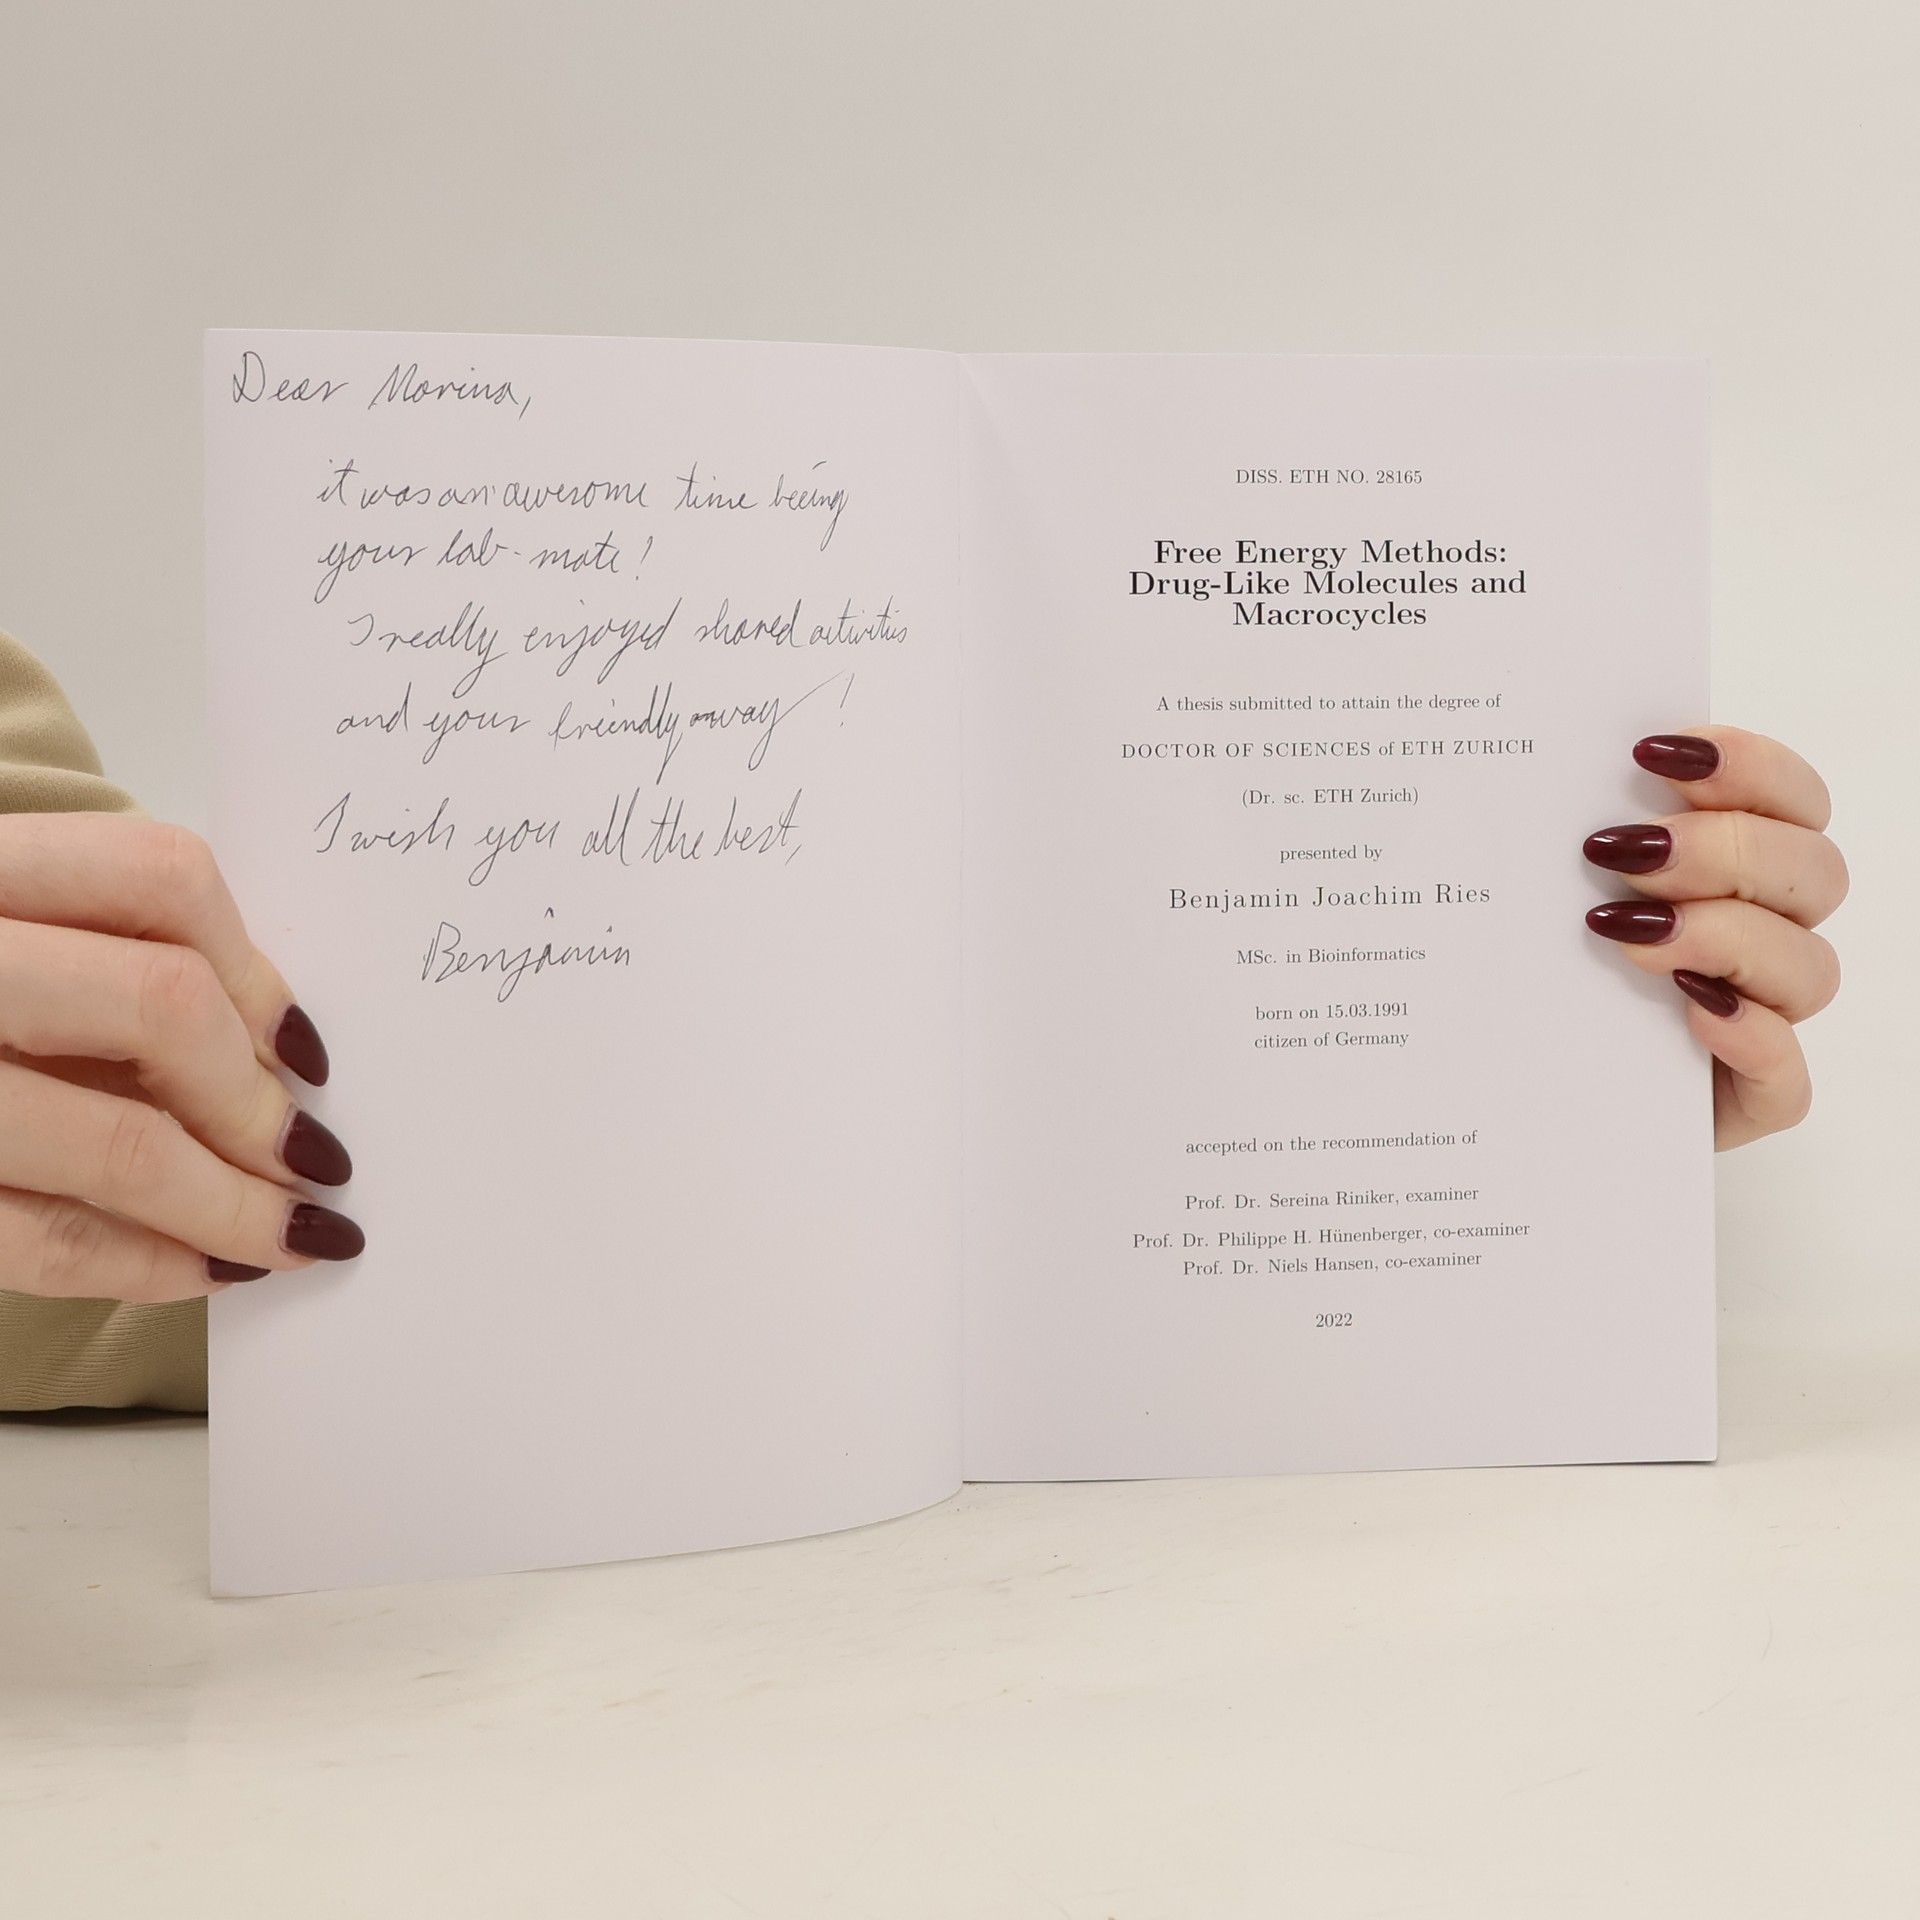 Dear Marina,
it was an awesome time beeing
your lab-mate!
I really enjoyed shared activities
and your friendly way!
I wish you all the best,
Benjamin
DISS. ETH NO. 28165
Free Energy Methods:
Drug-Like Molecules and
Macrocycles
A thesis submitted to attain the degree of
DOCTOR OF SCIENCES of ETH ZURICH
(Dr. sc. ETH Zurich)
presented by
Benjamin Joachim Ries
MSc. in Bioinformatics
born on 15.03.1991
citizen of Germany
accepted on the recommendation of
Prof. Dr. Sereina Riniker, examiner
Prof. Dr. Philippe H. Hünenberger, co-examiner
Prof. Dr. Niels Hansen, co-examiner
2022